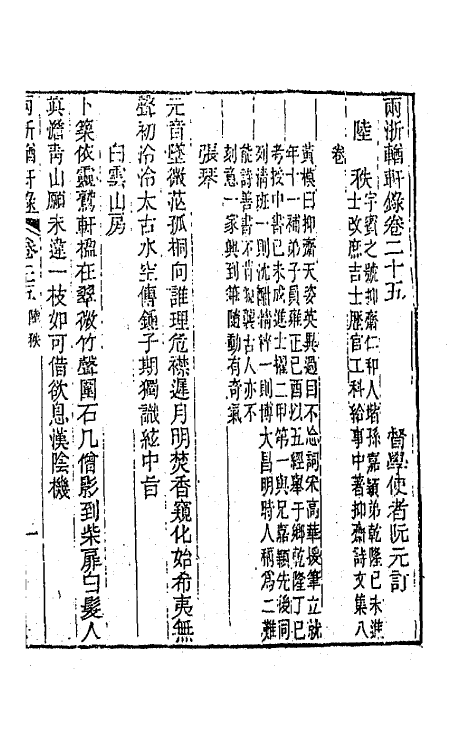 兩浙輶軒錄卷二十五
督學使者阮元訂
陸秩字賓之號抑齋仁和人堦孫嘉穎弟乾隆己未進
士改庶吉士歷官工科給事中著抑齋詩文集八
卷
黃模曰抑齋天姿英異過目不忘詞宋高華援筆立就
年十一補弟子員雍正己酉以五經舉于鄉乾隆丁巳
考授中書己未成進士擢二甲第一與兄嘉穎先後同
列清班一則沈酣情竹一則博大昌明時人稱為二難
能詩善書不肯規襲古人亦不
刻意一家興到筆隨動有奇氣
張琴
元音墜微茫孤桐向誰理危襟遲月明焚香窺化始希夷無
聲初泠泠太古水空傳鍾子期獨識絃中旨
白雲山房
卜築依靈鷲軒楹在翠微竹聲圍石几僧影到柴扉白髮人
真澹青山願未違一枝如可借欲息漢陰機
兩浙輶軒錄 卷二十五 陸秩 一